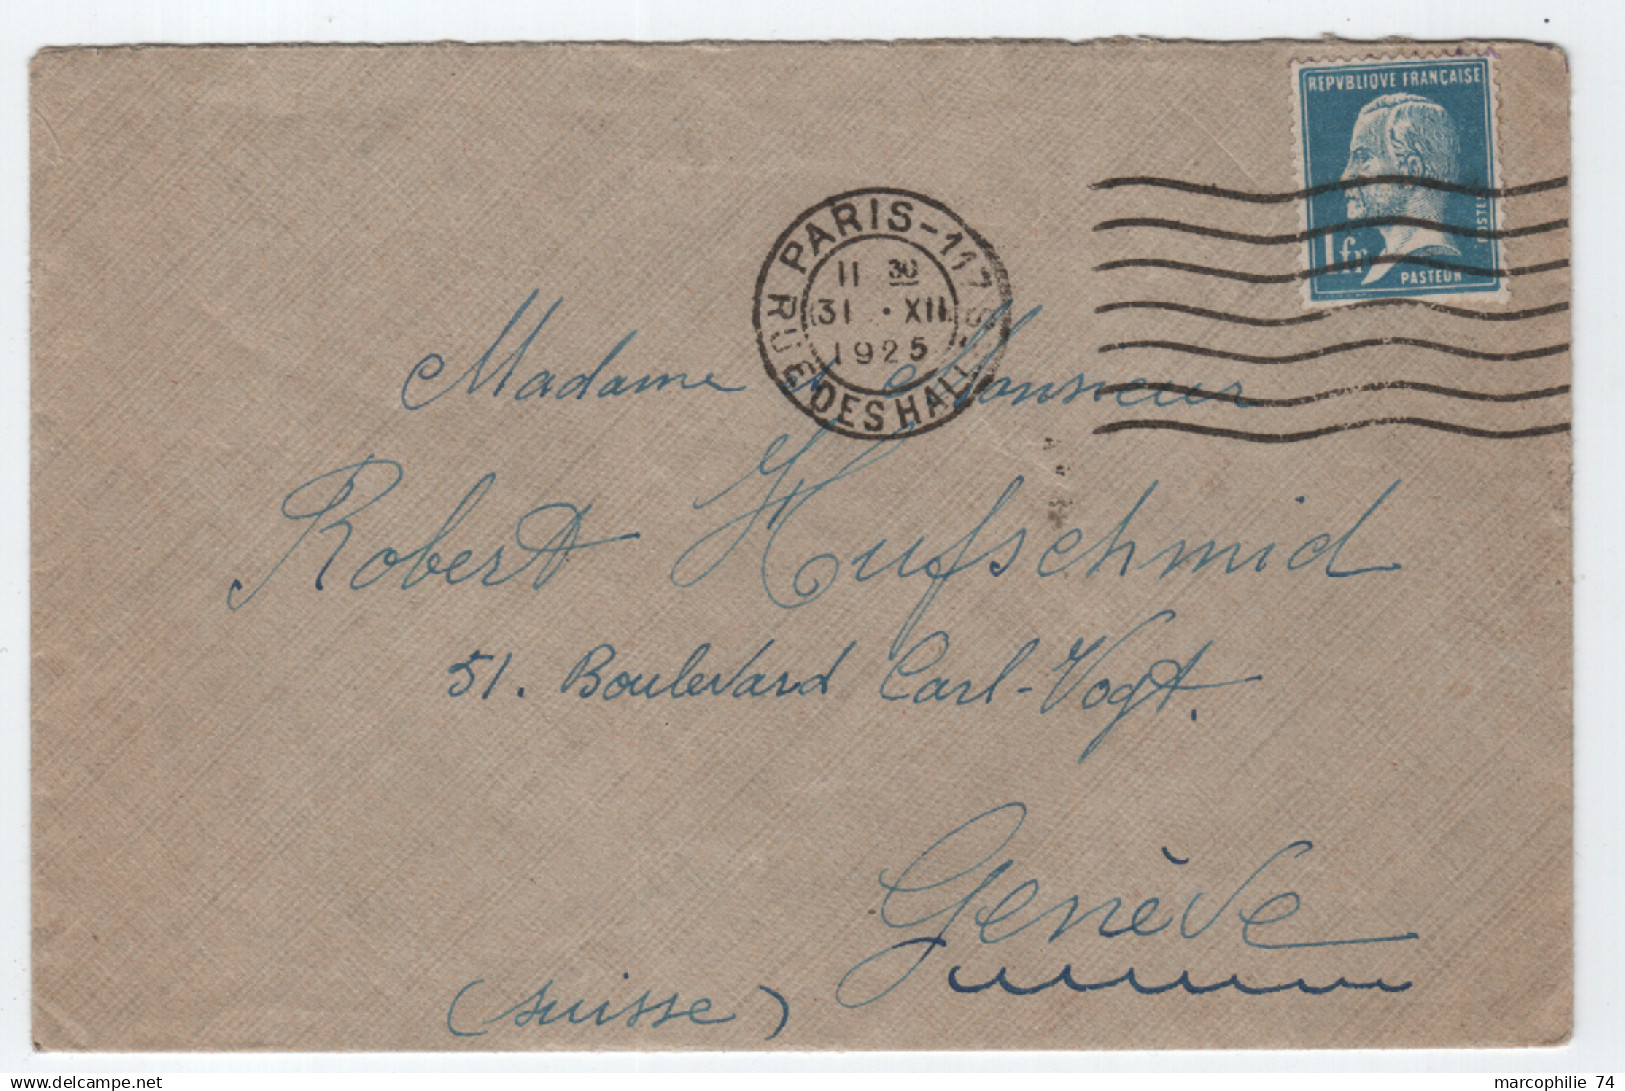 REPVBLIQVE FRANÇAISE
POSTES
1fr
PASTEUR
PARIS-117
11 30
31 • XII
1925
RUE DES HALL
Madame & Monsieur
Robert Hufschmid
51. Boulevard Carl-Vogt.
Genève
(Suisse)
marcophilie 74